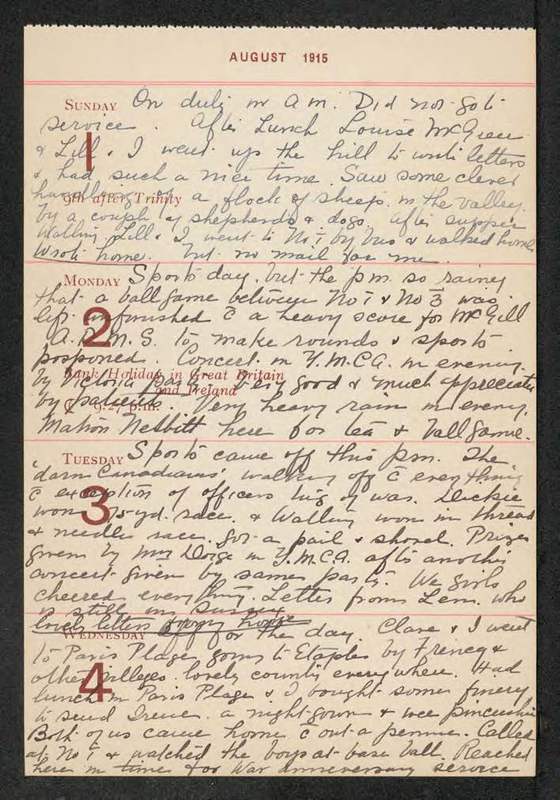 AUGUST 1915
SUNDAY On duty in a.m. Did not go to
service. After Lunch Louise McGreer
& Lill & I went up the hill to write letters
& had such a nice time. Saw some clever
9th after Trinity
handling of a flock of sheep in the valley
1
by a couple of shepherds & dogs. After supper
Walling Lill & I went to No 1 by bus & walked home
Wrote home. but no mail for me.
MONDAY Sports day, but the p.m. so rainy
that a ball game between No 1 & No 3 was
left unfinished c a heavy score for McGill
2
A.D.M.S. to make rounds & sports
postponed. Concert in Y.M.C.A. in evening
Bank Holiday in Great Britain
and Ireland
by Victoria party. Very good & much appreciated
☾ 9.27 p.m.
by patients. Very heavy rain in evening.
Matron Nesbitt here for tea & ball game.
TUESDAY Sports came off this p.m. The
'darn Canadians' walking off c everything
c exception of officers tug of war. Duckie
3
won yd. race & Walling won in thread
& needle race. got a pail & shovel. Prizes
given by Mrs in Y.M.C.A. after another
concert given by same party. We girls
cheered everything. Letter from Len. who
is still in Surrey
lovely letters from home
WEDNESDAY off for the day. Clare & I went
to Paris Plage going to Etaples by Frencq &
other villages. lovely country everywhere. Had
4
lunch in Paris Plage & I bought some finery
to send Irene. a night-gown & wee pincushion
Both of us came home c out a penny. Called
at No 1 & watched the boys at base ball. Reached
here in time for War anniversary service